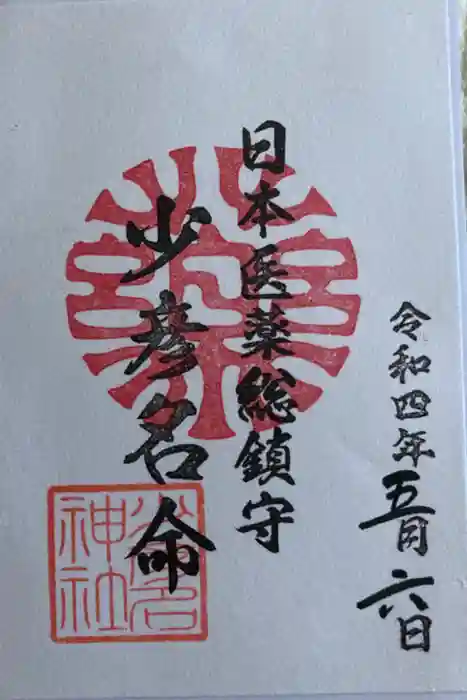 令和四年五月六日
日本医薬総鎮守
少彦名命
神社